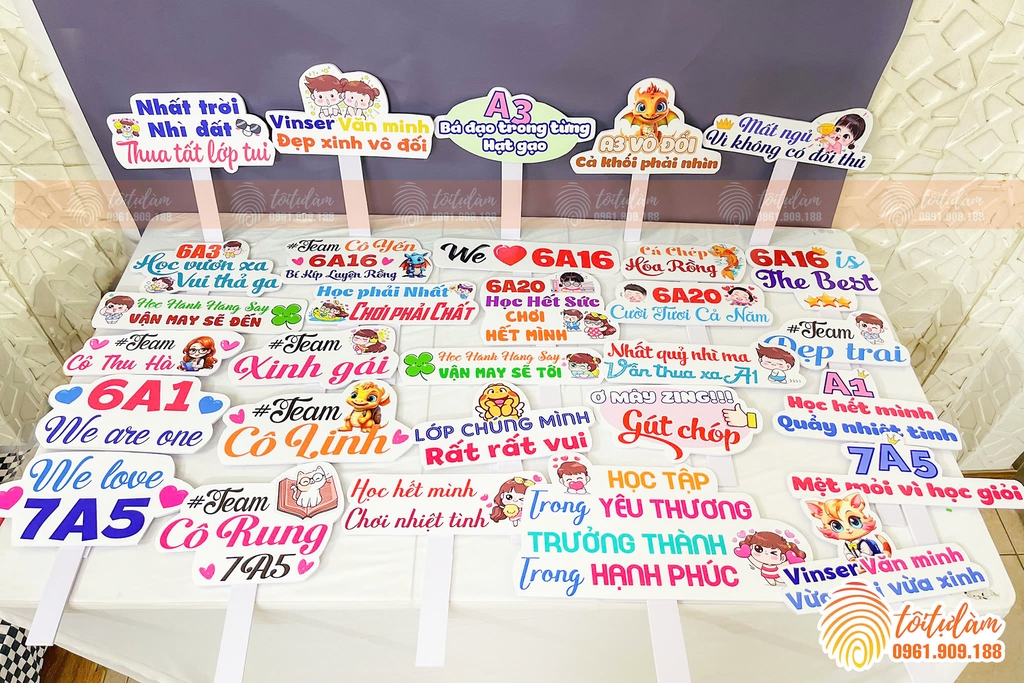 Nhất trời
Nhì đất
Thua tất lớp tui
Vinser Văn minh
Đẹp xinh vô đối
A3
Bá đạo trong từng
Hạt gạo
A3 VÔ ĐỐI
Cả khối phải nhìn
Mất ngủ
Vì không có đối thủ
tôitựlàm
0961.909.188
tôitựlàm
0961.909.188
tôitựlàm
0961.909.188
tôitựlàm
0961.909.188
tôitựlàm
0961.909.188
6A3
Học vươn xa
Vui thả ga
#Team Cô Yến
6A16
Bí Kíp Luyện Rồng
We 6A16
Cá Chép
Hóa Rồng
6A16 is
The Best
Học Hành Hăng Say
VẬN MAY SẼ ĐẾN
Học phải Nhất
CHƠI PHẢI CHẤT
6A20
Học Hết Sức
CHƠI
HẾT MÌNH
6A20
Cười Tươi Cả Năm
#Team
Cô Thu Hà
#Team
Xinh gái
Học Hành Hăng Say
VẬN MAY SẼ TỚI
Nhất quỷ nhì ma
Vẫn thua xa A1
#Team
Đẹp trai
6A1
We are one
#Team
Cô Linh
LỚP CHÚNG MÌNH
Rất rất vui
Ơ MÂY ZING!!!
Gút chóp
A1
Học hết mình
Quẩy nhiệt tình
We love
7A5
#Team
Cô Rung
7A5
Học hết mình
Chơi nhiệt tình
HỌC TẬP
Trong YÊU THƯƠNG
TRƯỞNG THÀNH
Trong HẠNH PHÚC
7A5
Mệt mỏi vì học giỏi
Vinser Văn minh
Vừa vừa xinh
tôitựlàm
0961.909.188